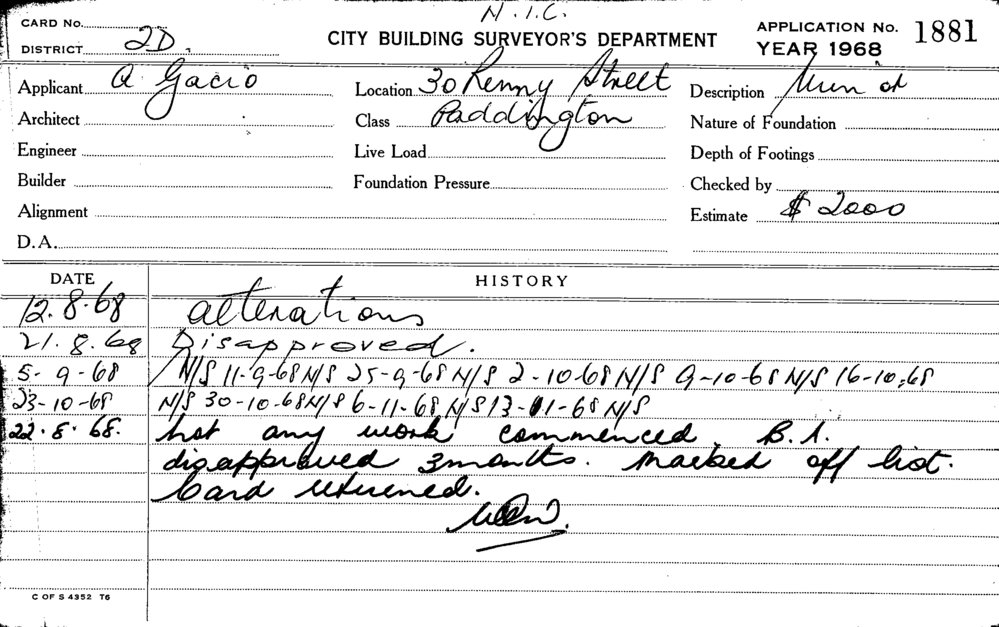 N.I.C.
CARD No.
DISTRICT 2D.
CITY BUILDING SURVEYOR'S DEPARTMENT
APPLICATION No. 1881
YEAR 1968
Applicant A Gacio
Location 30 Renny Street
Description
Architect
Class Paddington
Nature of Foundation
Engineer
Live Load
Depth of Footings
Builder
Foundation Pressure
Checked by
Alignment
Estimate $ 2000
D.A.
DATE HISTORY
12.8.68 alterations
21.8.68 Disapproved.
5-9-68 N/S 11-9-68 N/S 25-9-68 N/S 2-10-68 N/S 9-10-68 N/S 16-10-68
23-10-68 N/S 30-10-68 N/S 6-11-68 N/S 13-11-68 N/S
22.8.68. not any work commenced. B.A.
disapproved 3 months. Marked off list.
Card returned.
C OF S 4352 T6